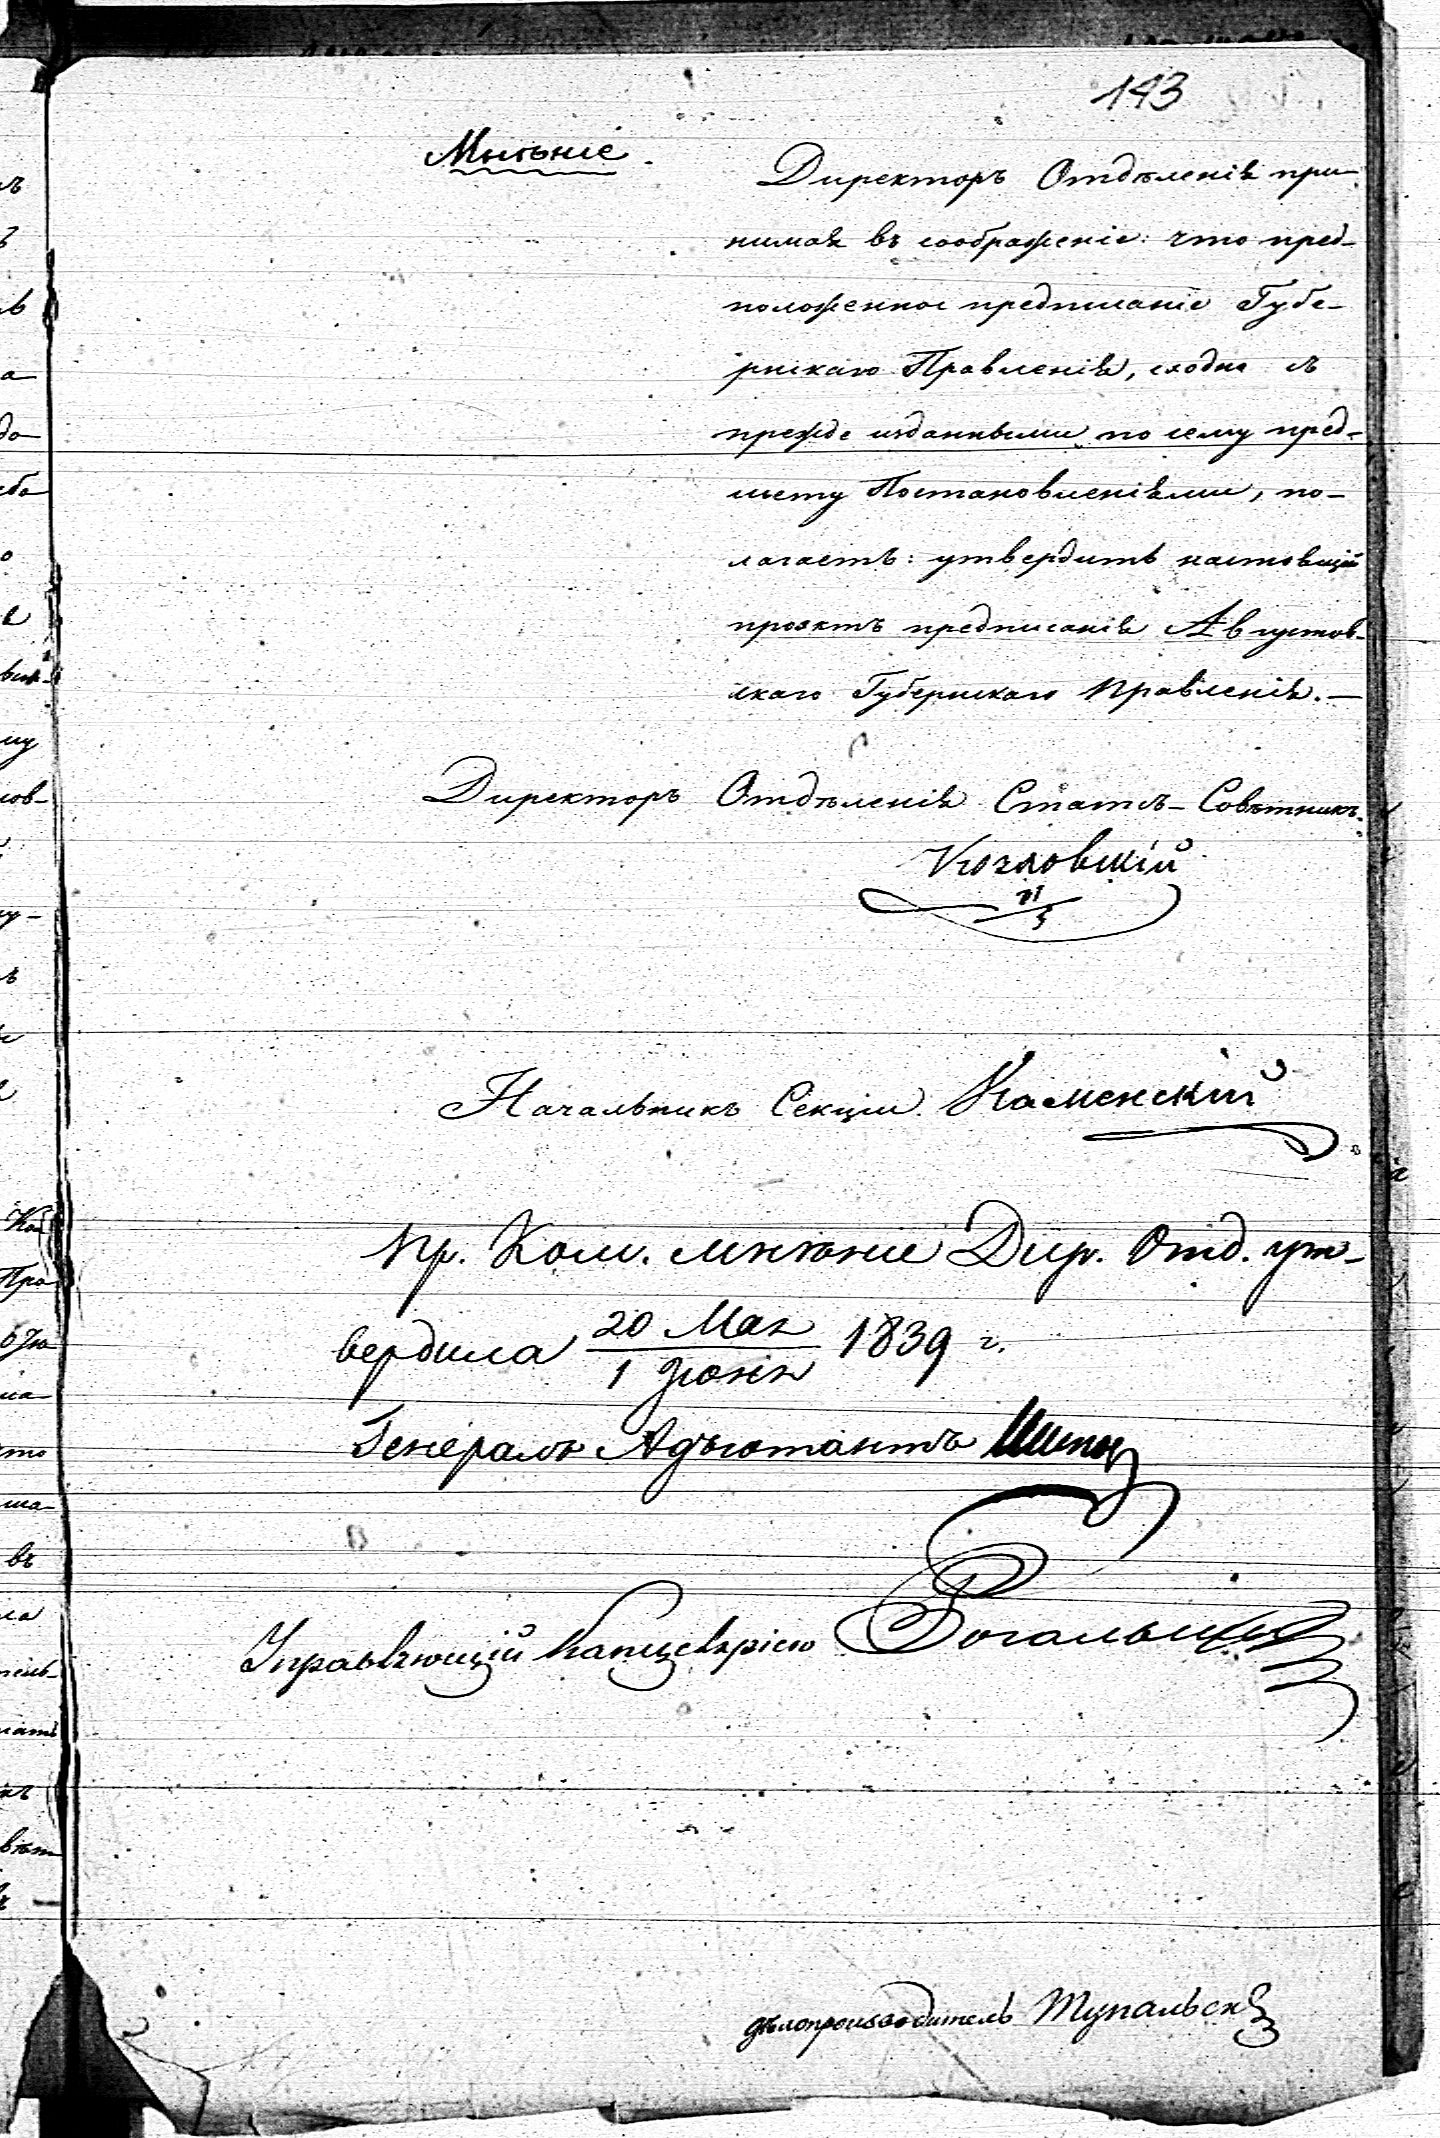 143
Мнѣніе.
Директоръ Отдѣленія при-
нимая въ соображеніе: что пред-
положенное предписаніе Губе-
рнскаго Правленія, сходно съ
прежде изданными по сему пред-
мету Постановленіями, по-
лагаетъ: утвердить настоящій
проэктъ предписанія Августов-
скаго Губернскаго Правленія.—
Директоръ Отдѣленія Статсъ-Совѣтникъ
Козловскій
Начальникъ Секціи Каменскій
Пр. Ком. мнѣніе Дир. Отд. ут-
вердила 20 Мая / 1 Іюня 1839 г.
Генералъ Адъютантъ Шипов
Управляющій Канцеляріею
дѣлопроизводитель Тупальскій